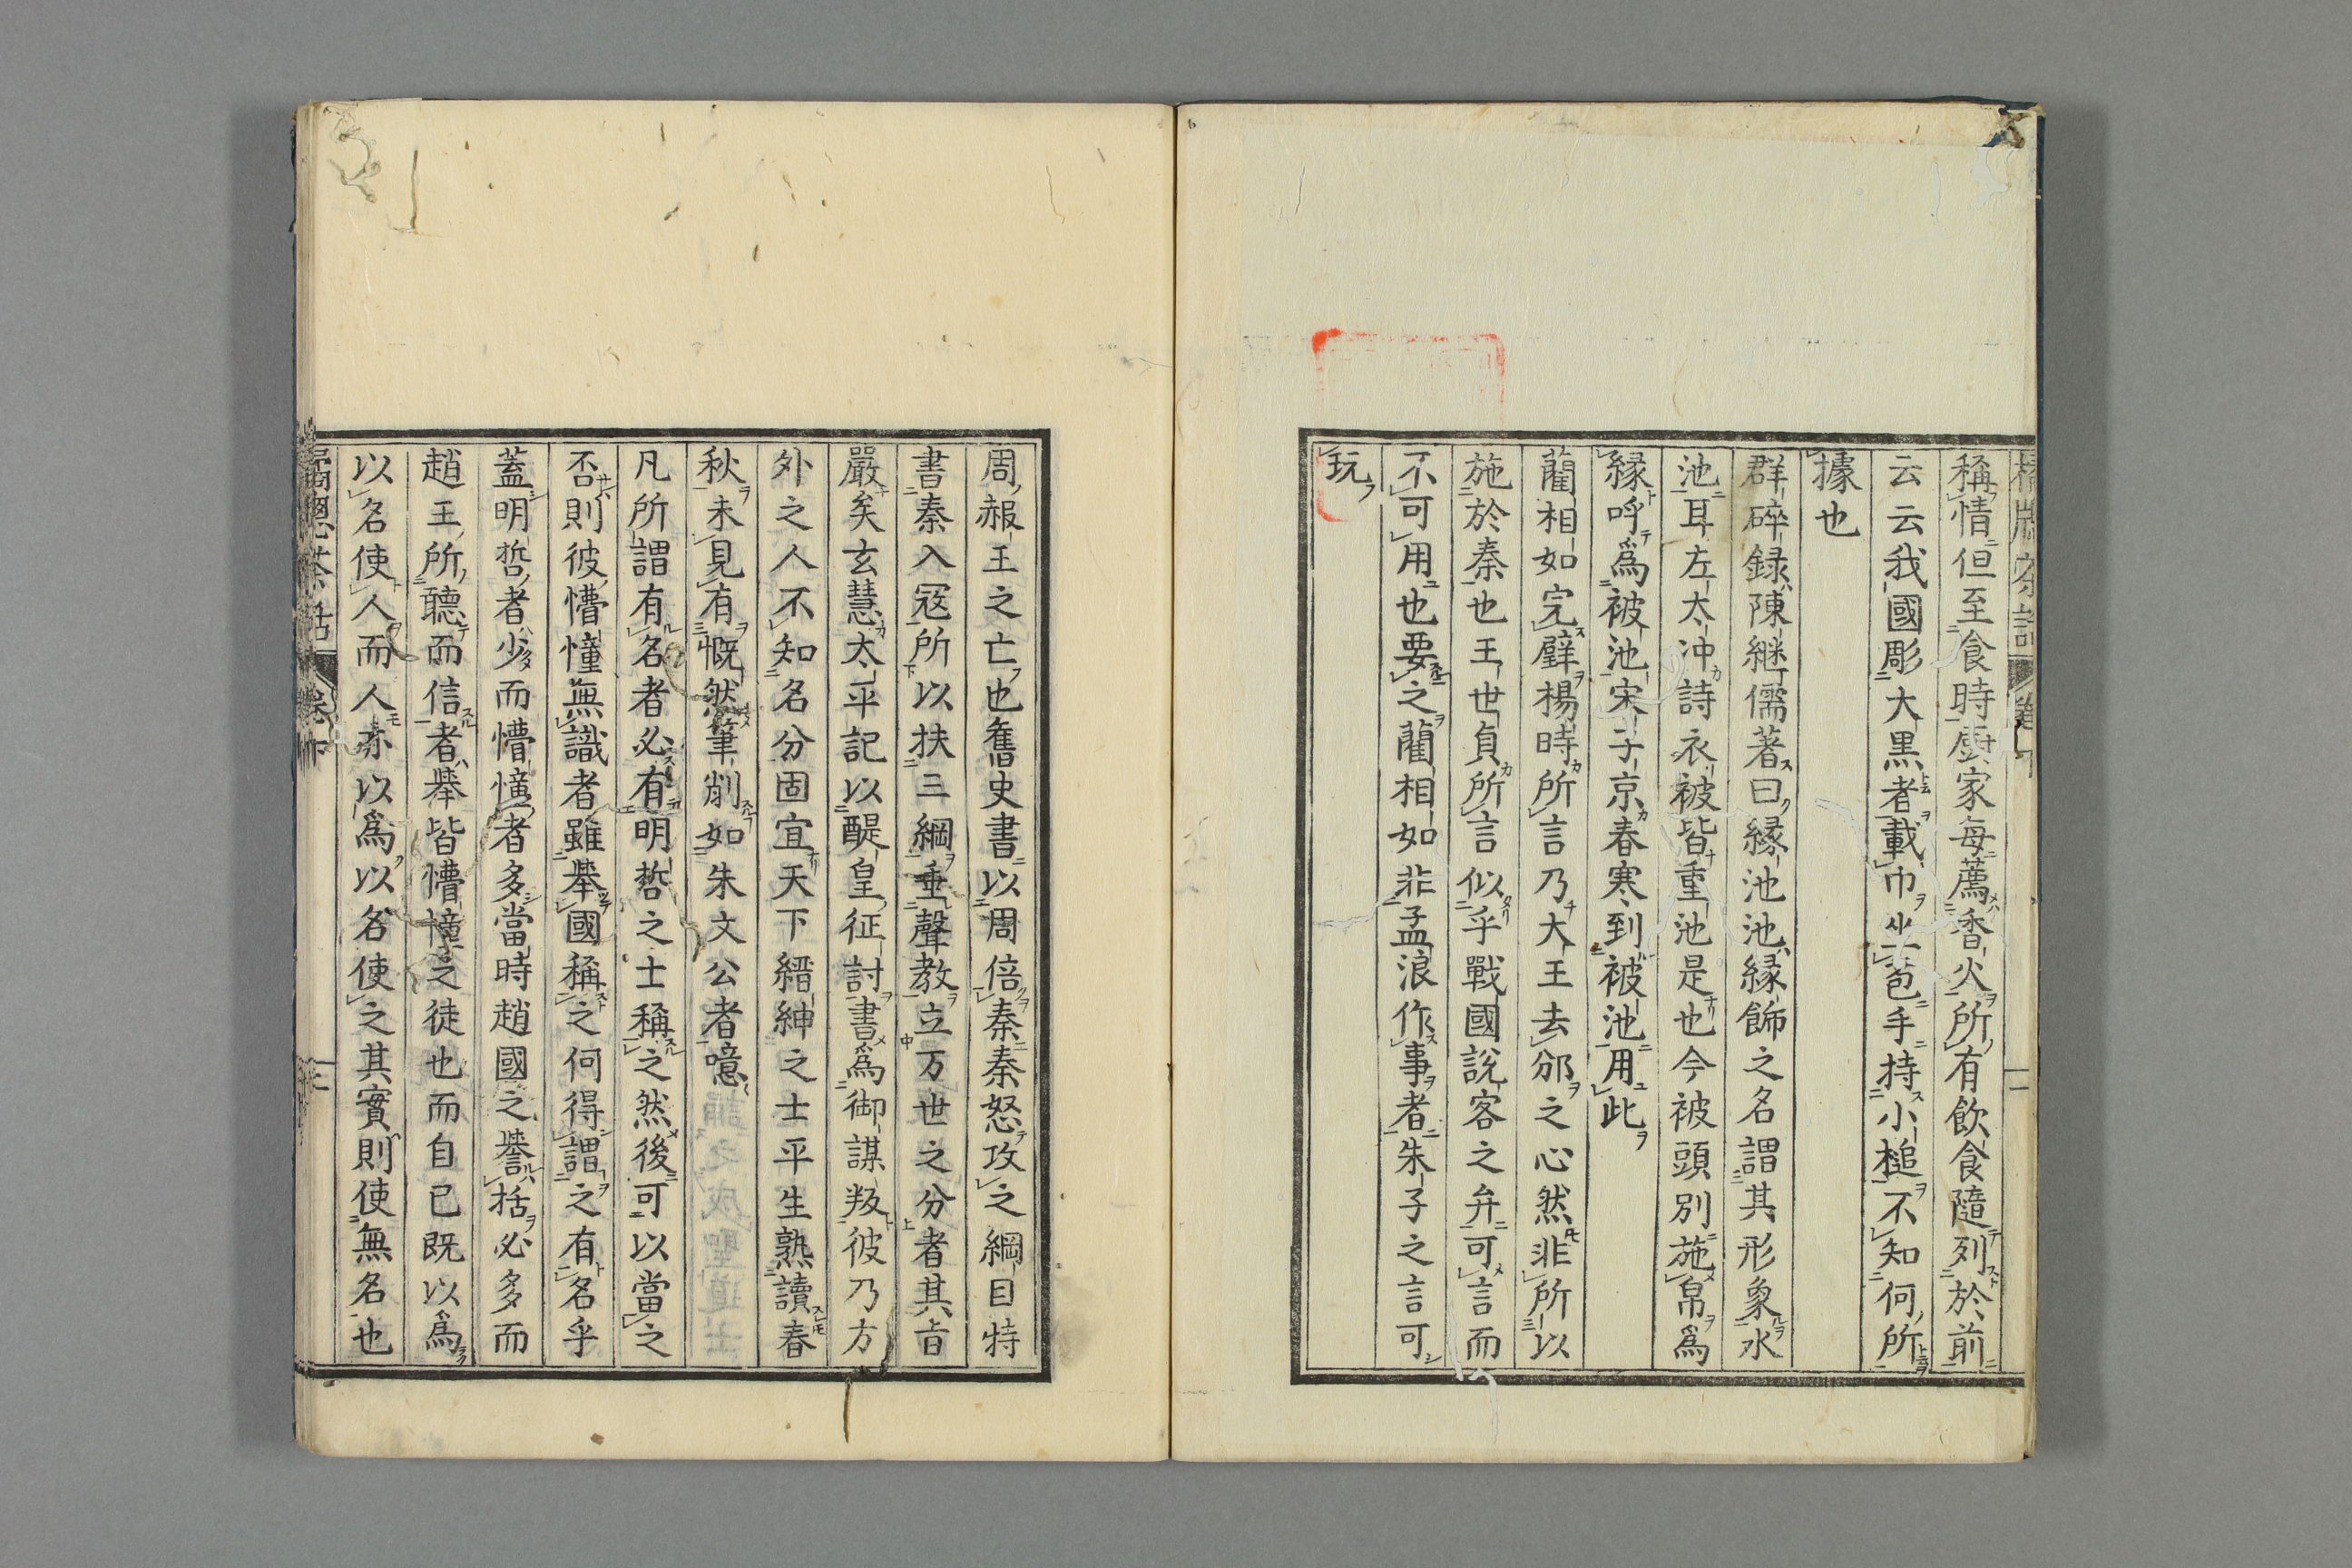 稱情但至食時厨家每薦香火所有飲食隨列於前
云云我國彫大黒者載巾坐苞手持小槌不知何所
據也
群碎録陳継儒著曰縁池池縁飾之名謂其形象水
池耳左太冲詩衣被皆重池是也今被頭別施帛爲
縁呼爲被池宋子京春寒到被池用此
藺相如完璧楊時所言乃大王去邠之心然非所以
施於秦也王世貞所言似乎戰國説客之弁可言而
不可用也要之藺相如非孟浪作事者朱子之言可
玩
周赧王之亡也舊史書以周倍秦秦怒攻之綱目特
書秦入寇所以扶三綱垂聲教立万世之分者其旨
嚴矣玄慧太平記以醍皇征討書爲御謀叛彼乃方
外之人不知名分固宜天下縉紳之士平生熟讀春
秋未見有慨然筆削如朱文公者噫
凡所謂有名者必有明哲之士稱之然後可以當之
否則彼懵憧無識者雖擧國稱之何得謂之有名乎
蓋明哲者少而懵憧者多當時趙國之譽括必多而
趙王所聽而信者擧皆懵憧之徒也而自已既以爲
以名使人而人亦以爲以名使之其實則使無名也